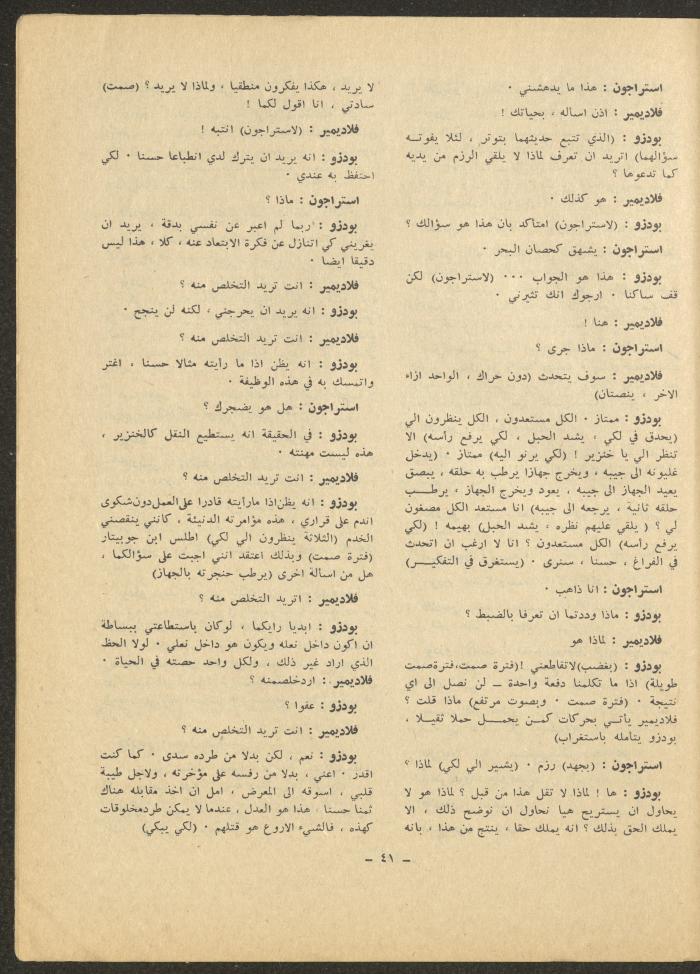 استراجون : هذا ما يدهشني ٠
فلاديمير : اذن اساله ، بحياتك !
بودزو : (الذي تتبع حديثهما بتوتر ، لئلا يفوتــه
سؤالهما) اتريد ان تعرف لماذا لا يلقي الرزم من يديه
كما تدعوها ؟
فلاديمير : هو كذلك ٠
بودزو : (لاستراجون) امتأكد بان هذا هو سؤالك ؟
استراجون : يشهق كحصان البحر ٠
بودزو : هذا هو الجواب ٠٠٠ (لاستراجون) لكن
قف ساكنا ٠ ارجوك انك تثيرني ٠
فلاديمير : هنا !
استراجون : ماذا جرى ؟
فلاديمير : سوف يتحدث (دون حراك ، الواحد ازاء
الاخر ، ينصتان)
بودزو : ممتاز ٠ الكل مستعدون ، الكل ينظرون الي
(يحدق في لكي ، يشد الحبل ، لكي يرفع رأسه) الا
تنظر الي يا خنزير ! (لكي يرنو اليه) ممتاز ٠ (يدخل
غليونه الى جيبه ، ويخرج جهازا يرطب به حلقه ، يبصق
يعيد الجهاز الى جيبه ، يعود ويخرج الجهاز ، يرطــب
حلقه ثانية ، يرجعه الى جيبه) انا مستعد الكل مصغون
لي ؟ ( يلقي عليهم نظره ، يشد الحبل) بهيمه ! (لكي
يرفع رأسه) الكل مستعدون ؟ انا لا ارغب ان اتحدث
في الفراغ ، حسنا ، سنرى ٠ (يستغرق في التفكيــر)
استراجون : انا ذاهب ٠
بودزو : ماذا وددتما ان تعرفا بالضبط ؟
فلاديمير : لماذا هو
بودزو : (بغضب)لاتقاطعني !(فترة صمت،فترةصمت
طويلة) اذا ما تكلمنا دفعة واحدة ــ لن نصل الى اي
نتيجة ٠ (فترة صمت ٠ وبصوت مرتفع) ماذا قلت ؟
فلاديمير يأتــي بحركات كمــن يحمــل حملا ثقيــلا ،
بودزو يتامله باستغراب)
استراجون : (يجهد) رزم ٠ (يشير الي لكي) لماذا ؟
بودزو : ها ! لماذا لا تقل هذا من قبل ؟ لماذا هو لا
يحاول ان يستريح هيا نحاول ان نوضح ذلك ، الا
يملك الحق بذلك ؟ انه يملك حقا ، ينتج من هذا ، بانه
لا يريد ، هكذا يفكرون منطقيا ، ولماذا لا يريد ؟ (صمت)
سادتي ، انا اقول لكما !
فلاديمير : (لاستراجون) انتبه !
بودزو : انه يريد ان يترك لدي انطباعا حسنا ٠ لكي
احتفظ به عندي ٠
استراجون : ماذا ؟
بودزو : ربما لم اعبر عن نفسي بدقة ، يريد ان
يغريني كي اتنازل عن فكرة الابتعاد عنه ، كلا ، هذا ليس
دقيقا ايضا ٠
فلاديمير : انت تريد التخلص منه ؟
بودزو : انه يريد ان يحرجني ، لكنه لن ينجح ٠
فلاديمير : انت تريد التخلص منه ؟
بودزو : انه يظن اذا ما رأيته مثالا حسنا ، اغتر
واتمسك به في هذه الوظيفة ٠
استراجون : هل هو يضجرك ؟
بودزو : في الحقيقة انه يستطيع النقل كالخنزير ،
هذه ليست مهنته ٠
فلاديمير : انت تريد التخلص منه ؟
بودزو : انه يظن‌اذا مارأيته قادرا على‌العمل‌دون‌شكوى
اندم على قراري ، هذه مؤامرته الدنيئة ، كانني ينقصني
الخدم (الثلاثة ينظرون الي لكي) اطلس ابن جوبيتار
(فترة صمت) وبذلك اعتقد انني اجبت على سؤالكما ،
هل من اسالة اخرى (يرطب حنجرته بالجهاز)
فلاديمير : اتريد التخلص منه ؟
بودزو : ابديا رايكما ، لوكان باستطاعتي ببساطة
ان اكون داخل نعله ويكون هو داخل نعلي ٠ لولا الحظ
الذي اراد غير ذلك ، ولكل واحد حصته في الحياة ٠
فلاديمير : اردخلصمنه ؟
بودزو : عفوا ؟
فلاديمير : انت تريد التخلص منه ؟
بودزو : نعم ، لكن بدلا من طرده سدى ٠ كما كنت
اقدر ٠ اعني ، بدلا من رفسه على مؤخرته ، ولاجل طيبة
قلبي ، اسوقه الى المعرض ، امل ان اخذ مقابله هناك
ثمنا حسنا ، هذا هو العدل ، عندما لا يمكن طردمخلوقات
كهذه ، فالشيء الاروع هو قتلهم ٠ (لكي يبكي)
ــ ٤١ ــ